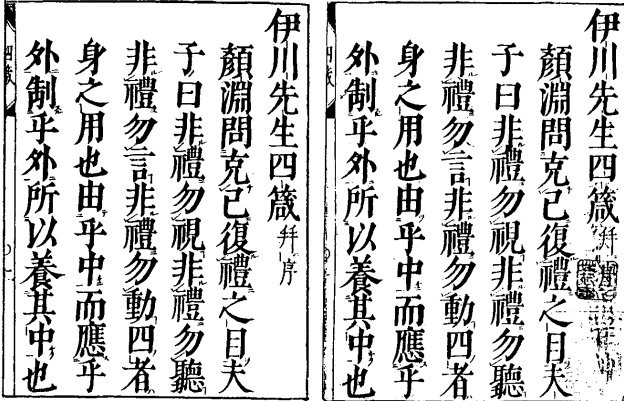 伊川先生四箴幷
顏淵問克己復禮之目夫
子曰非禮勿視非禮勿聽
非禮勿言非禮勿動四者
身之用也由乎中而應乎
外制乎外所以養其中也
四箴
伊川先生四箴幷序
顏淵問克己復禮之目夫
子曰非禮勿視非禮勿聽
非禮勿言非禮勿動四者
身之用也由乎中而應乎
外制乎外所以養其中也
四箴